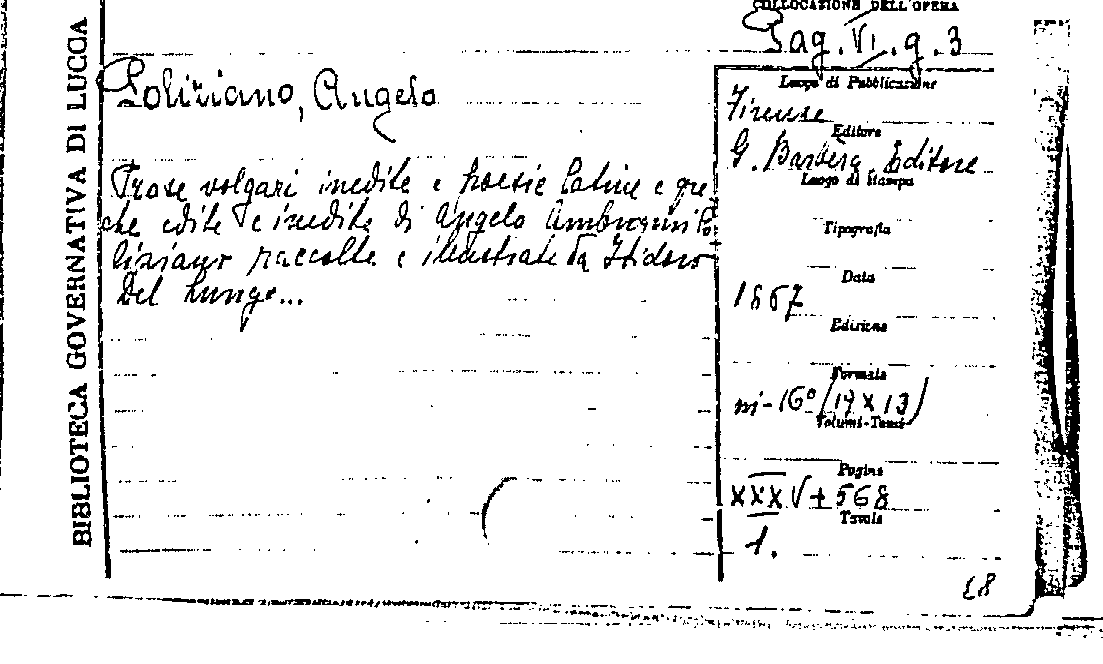 BIBLIOTECA GOVERNATIVA DI LUCCA
COLLOCAZIONE DELL'OPERA
Pag. VI. g. 3
Poliziano, Angelo
Prose volgari inedite e poesie latine e gre
che edite e inedite di Angelo Ambrogini Po
liziano raccolte e illustrate da Isidoro
Del Lungo...
Luogo di Pubblicazione
Firenze
Editore
G. Barbèra Editore
Luogo di Stampa
Tipografia
Data
1867
Edizione
Formato
in-16° (19 x 13)
Volumi-Tomi
Pagine
XXXV + 568
Tavole
1.